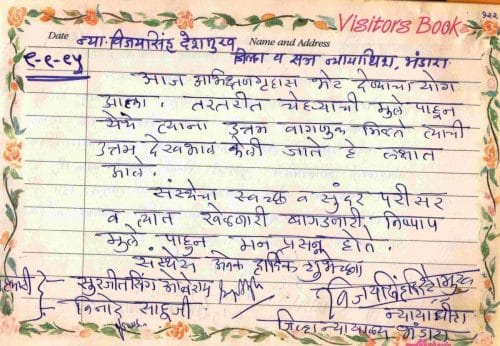 १२२
Visitors Book
Date न्या. विजयसिंह देशमुख Name and Address
जिल्हा व सत्र न्यायाधिश, भंडारा
९-९-९५
आज अभिक्षणगृहास भेट देण्याचा योग
आला. तरतरीत चेहऱ्याची मुले पाहून
येथे त्यांना उत्तम वागणुक मिळते त्याची
उत्तम देखभाल केली जाते हे लक्षात
आले.
संस्थेचा स्वच्छ व सुंदर परीसर
व त्यात खेळणारी बागडणारी निष्पाप
मुले पाहून मन प्रसन्न होते.
संस्थेस अनेक हार्दिक शुभेच्छा
सुरजीतसिंग ओबेराय
विनोद साहूजी
विजयसिंह देशमुख
न्यायाधीश
जिल्हा न्यायालय भंडारा